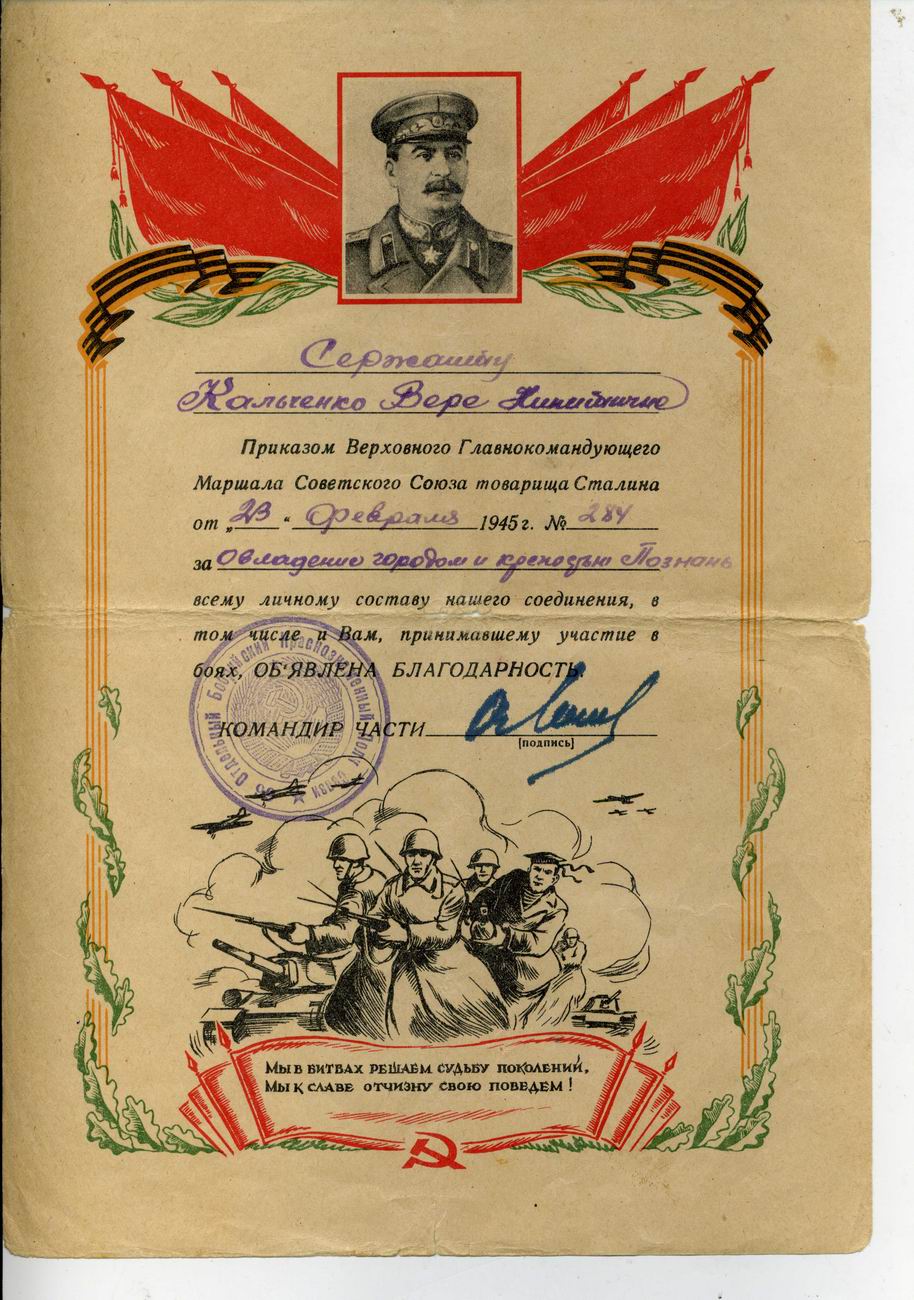 Сержанту
Кальченко Вере Никитичне
Приказом Верховного Главнокомандующего
Маршала Советского Союза товарища Сталина
от „23“ февраля 1945 г. № 284
за овладение городом и крепостью Познань
всему личному составу нашего соединения, в
том числе и Вам, принимавшему участие в
боях, ОБ‘ЯВЛЕНА БЛАГОДАРНОСТЬ.
КОМАНДИР ЧАСТИ
[подпись]
Отдельный Бобруйский Краснознаменный полк связи
МЫ В БИТВАХ РЕШАЕМ СУДЬБУ ПОКОЛЕНИЙ,
МЫ К СЛАВЕ ОТЧИЗНУ СВОЮ ПОВЕДЕМ!